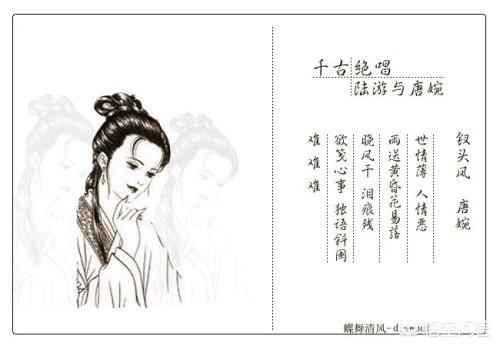 千古绝唱
陆游与唐婉
钗头凤 唐婉
世情薄 人情恶
雨送黄昏花易落
晓风干 泪痕残
欲笺心事 独语斜阑
难 难 难
蝶舞清风